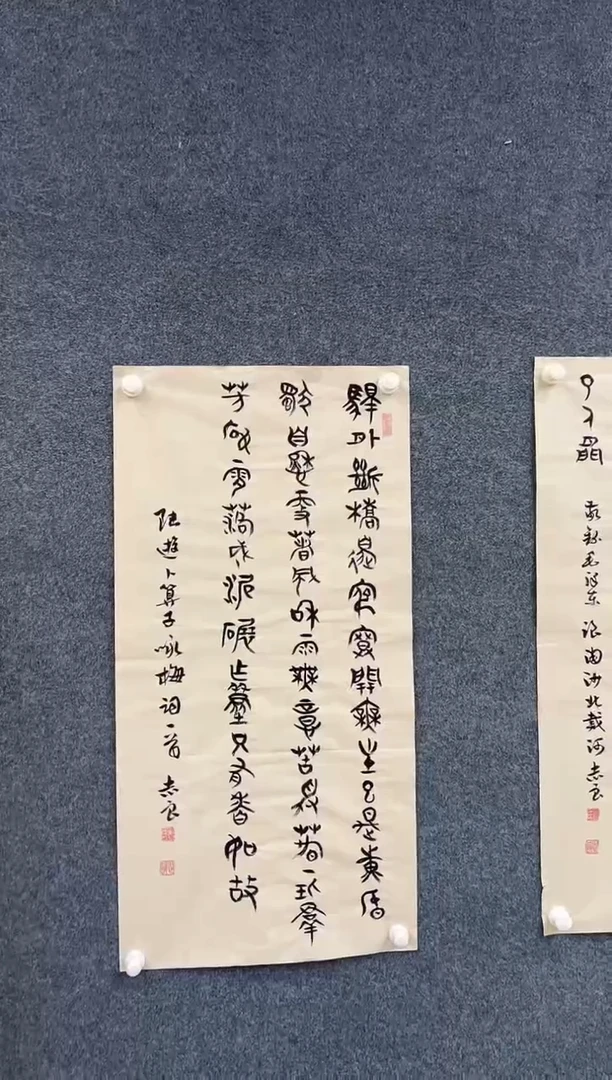 了人間
敬錄毛泽东浪淘沙北戴河 志良
驛外斷橋邊寂寞開無主已是黄昏
獨自愁更著風和雨無意苦爭春一任羣
芳妒零落成泥碾作塵只有香如故
陸遊卜算子咏梅词一首 志良